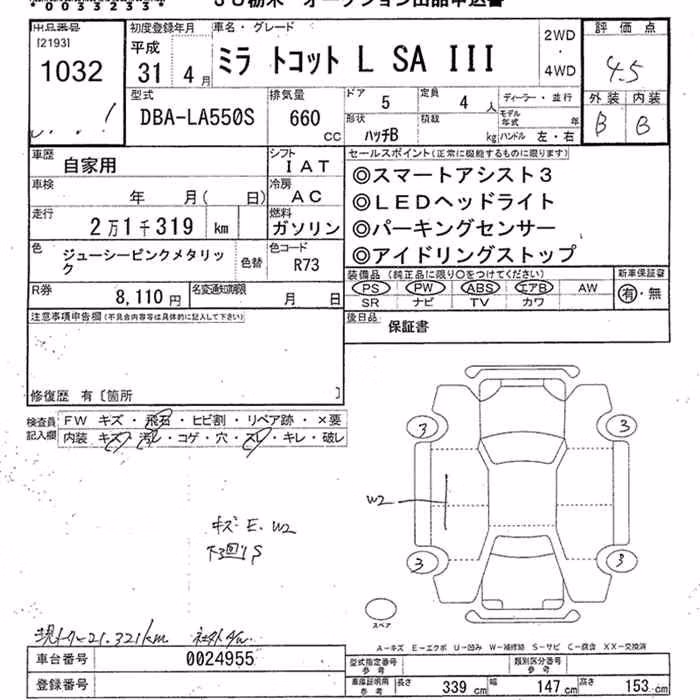 *00332334*
JU栃木 オークション出品申込書
出品番号
[2193]
1032
初度登録年月
平成
31年4月
車名・グレード
ミラ トコット L SA III
2WD
・
4WD
評価点
4.5
外装 内装
B B
型式
DBA-LA550S
排気量
660
CC
ドア 5
定員 4人
ディーラー・並行
モデル年式 年
形状 ハッチB
積載 kg
ハンドル 左・右
車歴 自家用
シフト IAT
車検 年 月( 日)
冷房 AC
走行 2万1千319 km
燃料 ガソリン
色 ジューシーピンクメタリック
色替
色コード R73
R券 8,110円
名変通知期限 月 日
セールスポイント(正常に機能するものに限ります)
◎スマートアシスト3
◎LEDヘッドライト
◎パーキングセンサー
◎アイドリングストップ
装備品(純正品に限り○をつけてください)
PS PW ABS エアB AW
SR ナビ TV カワ
新車保証書
有・無
後日品 保証書
注意事項申告欄(不具合内容等は具体的に記入して下さい)
修復歴 有〔箇所 〕
検査員記入欄
FW キズ・飛石・ヒビ割・リペア跡・×要
内装 キズ・汚レ・コゲ・穴・スレ・キレ・破レ
3 3
W2
キズ E. W2
下回りS
3 3
スペア
現メーター21,321km 社外
A-キズ E-エクボ U-凹み W-補修跡 S-サビ C-腐食 XX-交換済
車台番号 0024955
登録番号
型式指定番号 参考
類別区分番号 参考
車庫証明用 参考
長さ 339cm 幅 147cm 高さ 153cm